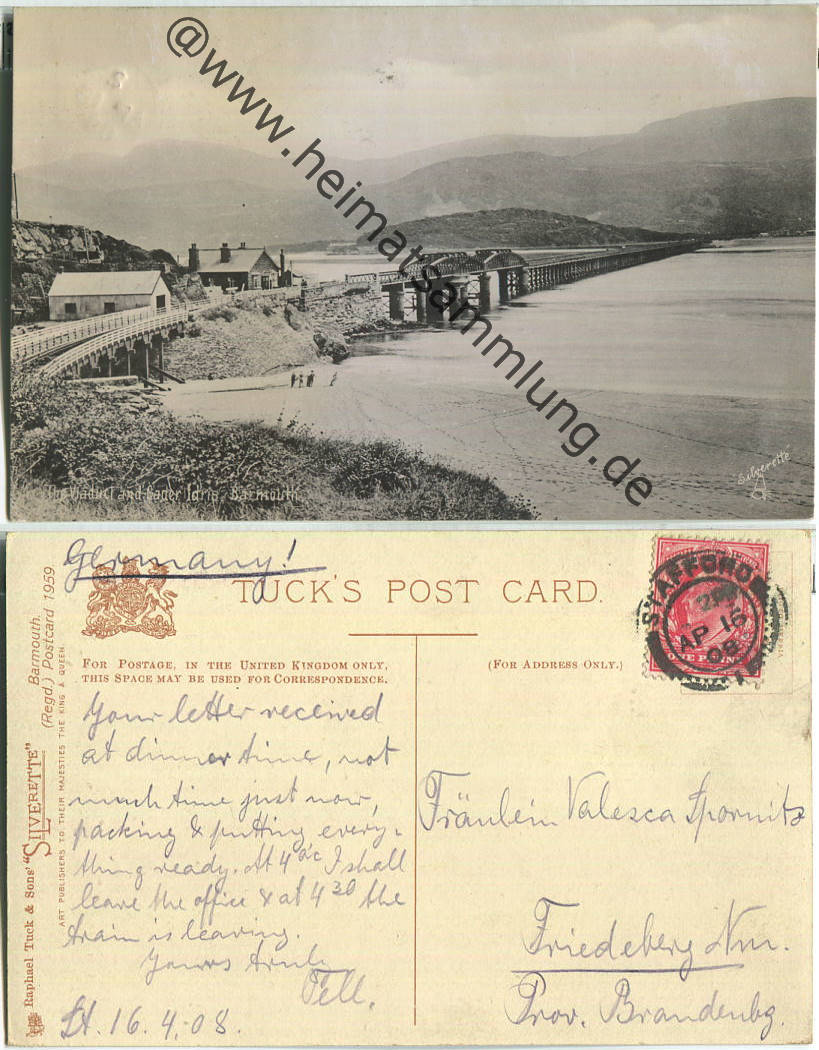 @www.heimatsammlung.de
The Viaduct and Cader Idris, Barmouth
"Silverette"
Germany!
TUCK'S POST CARD.
FOR POSTAGE, IN THE UNITED KINGDOM ONLY,
THIS SPACE MAY BE USED FOR CORRESPONDENCE.
(FOR ADDRESS ONLY.)
STAFFORD
2PM
AP 16
08
ONE PENNY
Raphael Tuck & Sons' "SILVERETTE"
Barmouth.
(Regd.) Postcard 1959.
ART PUBLISHERS TO THEIR MAJESTIES THE KING & QUEEN.
Your letter received
at dinner time, not
much time just now,
packing & putting every-
thing ready. At 4 o/c I shall
leave the office & at 4 30 the
train is leaving.
Yours
Tell.
St. 16. 4. 08.
Fräulein Valesca Spornitz
Friedeberg Nm.
Prov. Brandenbg.